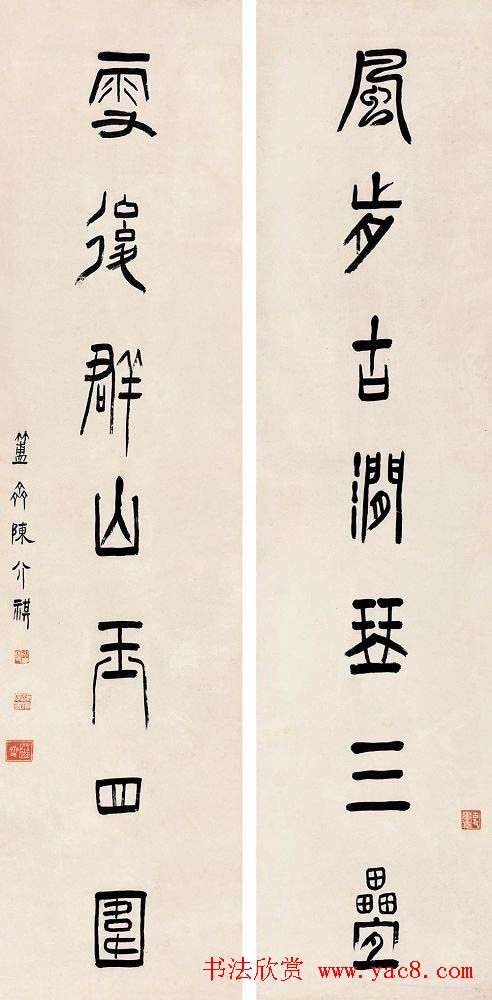 風歬古澗琴三疊
雪後群山玉四圍
簠齋陳介祺
书法欣赏 www.yac8.com